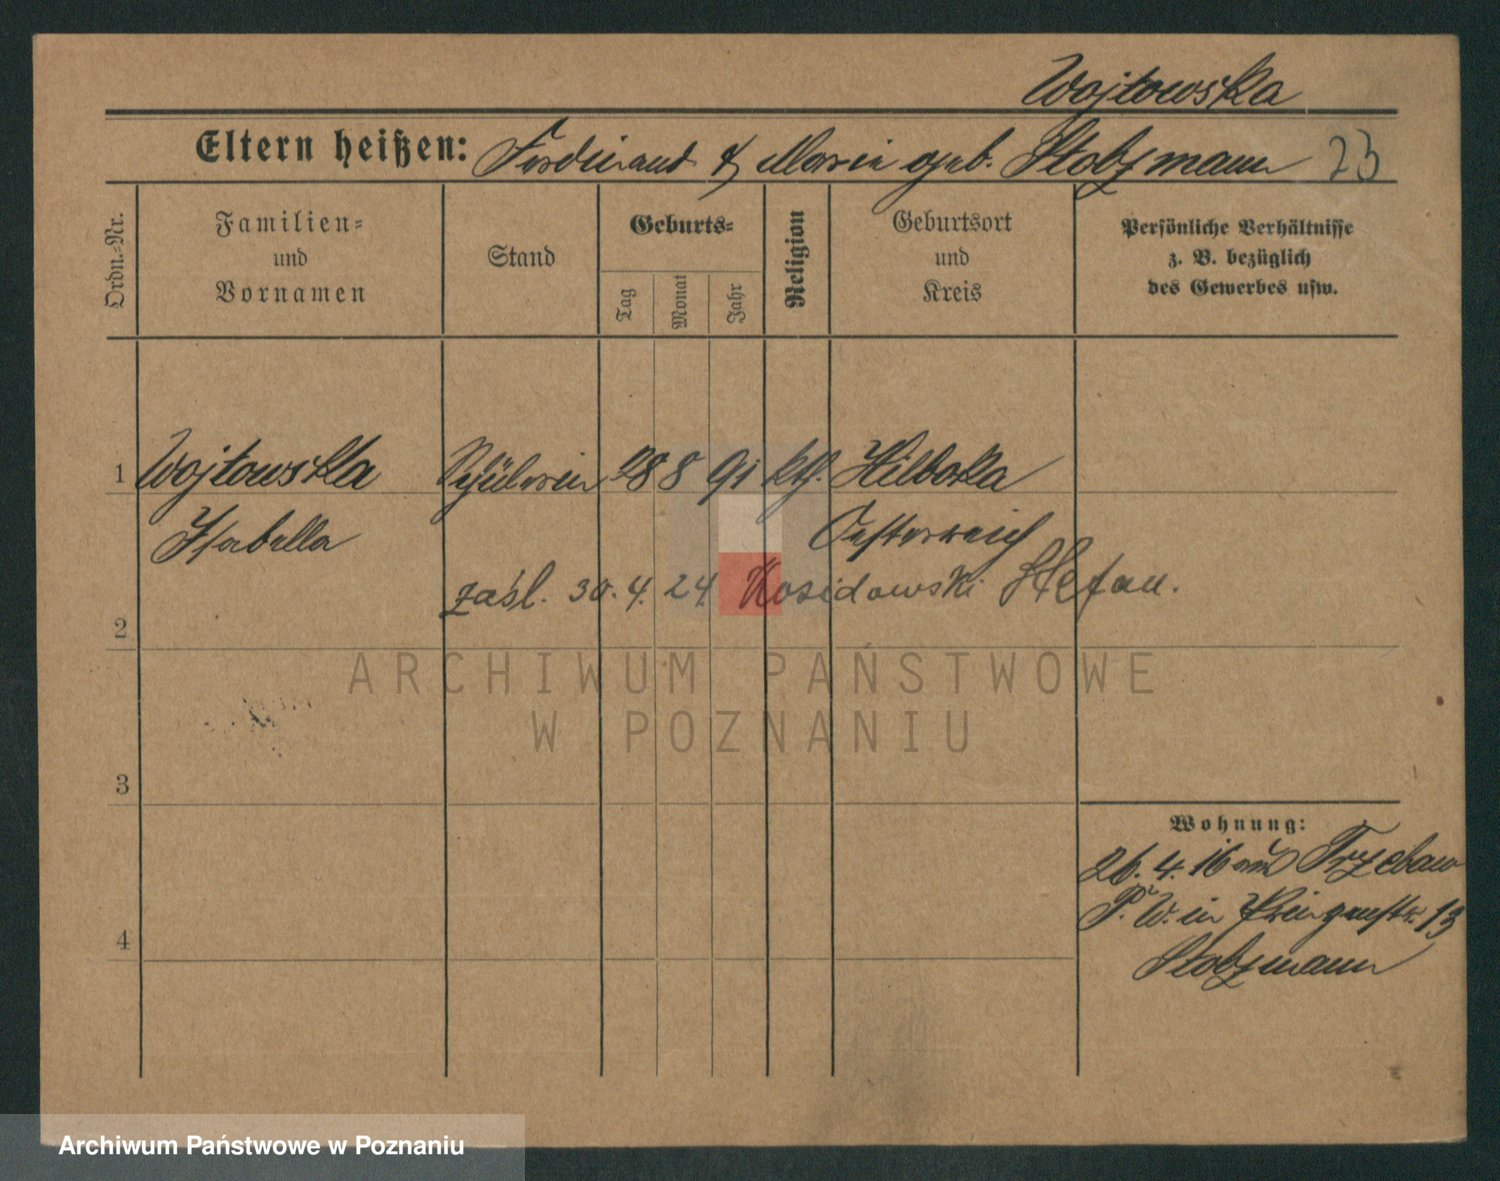 Wojtowska
Eltern heißen: Ferdinand & Maria geb. Stolzmann 23
Ordn.-Nr.
Familien-
und
Vornamen
Stand
Geburts-
Tag
Monat
Jahr
Religion
Geburtsort
und
Kreis
Persönliche Verhältnisse
z. B. bezüglich
des Gewerbes usw.
1 Wojtowska Schülerin 28 8 91 kth. Hliboka
Isabella Oesterreich
zaśl. 30.4.24. Kosidowski Stefan.
2
ARCHIWUM PAŃSTWOWE
W POZNANIU
3
Wohnung:
26.4.16 aus Trzebaw
P. W. in 13
4
Stolzmann
Archiwum Państwowe w Poznaniu